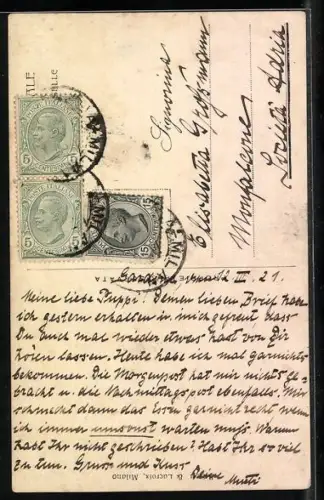 Signorina
Elisabetta Großmann
Monfalcone
Società Adria
12 III. 21.
Meine liebe Puppi! Deinen lieben Brief habe
ich gestern erhalten u. mich gefreut, dass
Du Euch mal wieder etwas hast von Dir
hören lassen. Heute habe ich mal garnichts
bekommen. Die Morgenpost hat mir nichts ge-
bracht u. die Nachmittagspost ebenfalls. Mir
schmeckt dann das Essen garnicht recht wenn
ich immer umsonst warten muss. Warum
habt Ihr nicht geschrieben? Habt Ihr so viel
zu tun. Gruss und Kuss
Deine Mutti
G. Lacroix, Milano
POSTE ITALIANE
5 CENTESIMI 5
5 CENTESIMI 5
15
MILA